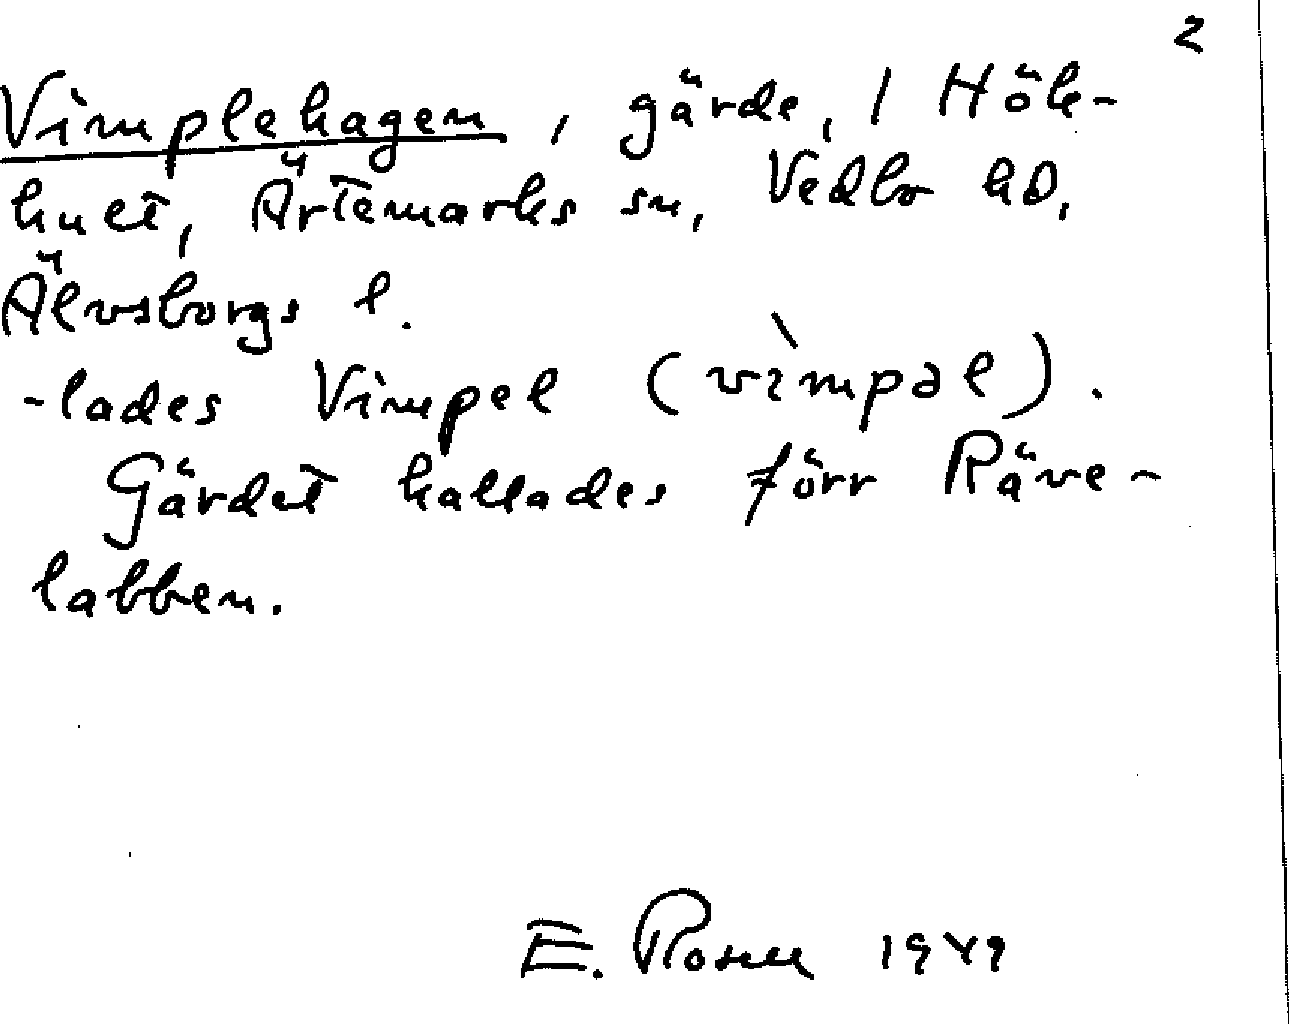 2
Vimplehagen, gärde, 1 Hök-
hult, Ärtemarks sn, Vedbo hd,
Älvsborgs l.
-lades Vimpel (vìmpəl).
Gärdet kallades förr Räve-
labben.
E. Rosell 1949